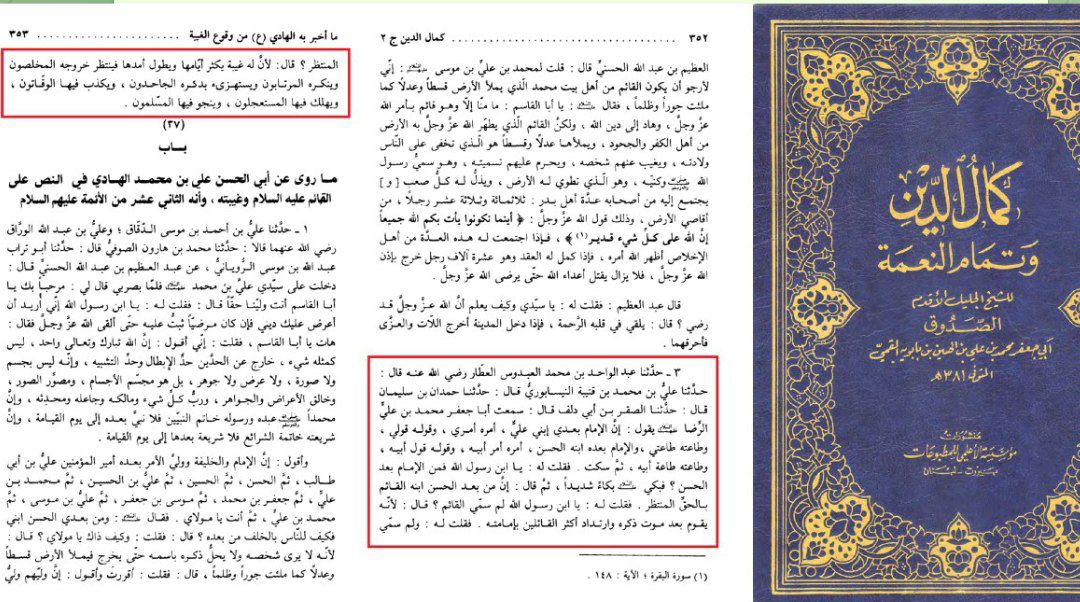 ٣٥٢ ........ كمال الدين ج ٢
العظيم بن عبد الله الحسنيّ قال : قلت لمحمد بن عليّ بن موسى : إنّي
لأرجو أن يكون القائم من أهل بيت محمد الّذي يملأ الأرض قسطاً وعدلًا كما
ملئت جوراً وظلماً ، فقال : يا أبا القاسم : ما منّا إلّا وهو قائم بأمر الله
عزّ وجلَّ ، وهاد إلى دين الله ، ولكنَّ القائم الّذي يطهّر الله عزَّ وجلَّ به الأرض
من أهل الكفر والجحود ، ويملأها عدلًا وقسطاً هو الّذي تخفى على النّاس
ولادته ، ويغيب عنهم شخصه ، ويحرم عليهم تسميته ، وهو سميُّ رسول
الله وكنيّه ، وهو الّذي تطوي له الأرض ، ويذلُّ له كلُّ صعب [ و ]
يجتمع إليه من أصحابه عدَّة أهل بدر : ثلاثمائة وثلاثة عشر رجلًا ، من
أقاصي الأرض ، وذلك قول الله عزَّ وجلَّ : ﴿ أينما تكونوا يأت بكم الله جميعاً
إنَّ الله على كلِّ شيء قدير (١) ﴾ ، فإذا اجتمعت له هذه العدَّة من أهل
الإخلاص أظهر الله أمره ، فإذا كمل له العقد وهو عشرة آلاف رجل خرج بإذن
الله عزَّ وجلَّ ، فلا يزال يقتل أعداء الله حتّى يرضى الله عزَّ وجلَّ .
قال عبد العظيم : فقلت له : يا سيّدي وكيف يعلم أنَّ الله عزَّ وجلَّ قد
رضي ؟ قال : يلقي في قلبه الرَّحمة ، فإذا دخل المدينة أخرج اللّات والعزَّى
فأحرقهما .
٣ ـ حدَّثنا عبد الواحد بن محمد العبدوس العطّار رضي الله عنه قال :
حدَّثنا عليُّ بن محمد بن قتيبة النيسابوريُّ قال : حدَّثنا حمدان بن سليمان
قال : حدَّثنا الصقر بن أبي دلف قال : سمعت أبا جعفر محمد بن عليٍّ
الرِّضا يقول : إنَّ الإمام بعدي إبني عليٌّ ، أمره أمري ، وقوله قولي ،
وطاعته طاعتي ، والإمام بعده ابنه الحسن ، أمره أمر أبيه ، وقوله قول أبيه ،
وطاعته طاعة أبيه ، ثمَّ سكت . فقلت له : يا ابن رسول الله فمن الإمام بعد
الحسن ؟ فبكى بكاءً شديداً ، ثمَّ قال : إنَّ من بعد الحسن ابنه القائم
بالحقّ المنتظر . فقلت له : يا ابن رسول الله لم سمّي القائم ؟ قال : لأنّه
يقوم بعد موت ذكره وارتداد أكثر القائلين بإمامته . فقلت له : ولم سمّي
(١) سورة البقرة ؛ الآية : ١٤٨ .
ما أخبر به الهادي (ع) من وقوع الغيبة ........ ٣٥٣
المنتظر ؟ قال : لأنَّ له غيبة يكثر أيّامها ويطول أمدها فينتظر خروجه المخلصون
وينكره المرتابون ويستهزىء بذكره الجاحدون ، ويكذب فيها الوقّاتون ،
ويهلك فيها المستعجلون ، وينجو فيها المسلمون .
(٣٧)
بـــاب
ما روى عن أبي الحسن علي بن محمد الهادي في النص على
القائم عليه السلام وغيبته ، وأنه الثاني عشر من الأئمة عليهم السلام
١ ـ حدَّثنا عليُّ بن أحمد بن موسى الدقّاق ؛ وعليُّ بن عبد الله الورَّاق
رضي الله عنهما قالا : حدَّثنا محمد بن هارون الصوفيُّ قال : حدَّثنا أبو تراب
عبد الله بن موسى الرُّويانيُّ ، عن عبد العظيم بن عبد الله الحسنيّ قال :
دخلت على سيّدي عليِّ بن محمد فلمّا بصرني قال لي : مرحباً بك يا
أبا القاسم أنت وليّنا حقّاً قال : فقلت له : يا ابن رسول الله إنّي أُريد أن
أعرض عليك ديني فإن كان مرضيّاً ثبتُّ عليه حتى ألقى الله عزَّ وجلَّ فقال :
هات يا أبا القاسم ، فقلت : إنّي أقول : إنَّ الله تبارك وتعالى واحد ، ليس
كمثله شيء ، خارج عن الحدَّين حدِّ الإبطال وحدِّ التشبيه ، وإنّه ليس بجسم
ولا صورة ، ولا عرض ولا جوهر ، بل هو مجسّم الأجسام ، ومصوِّر الصور ،
وخالق الأعراض والجواهر ، وربُّ كلِّ شيء ومالكه وجاعله ومحدثه ، وإنَّ
محمداً عبده ورسوله خاتم النبيّين فلا نبيَّ بعده إلى يوم القيامة ، وإنَّ
شريعته خاتمة الشرائع فلا شريعة بعدها إلى يوم القيامة .
وأقول : إنَّ الإمام والخليفة ووليَّ الأمر بعده أمير المؤمنين عليُّ بن أبي
طالب ، ثمَّ الحسن ، ثمَّ الحسين ، ثمَّ عليُّ بن الحسين ، ثمَّ محمد بن
عليٍّ ، ثمَّ جعفر بن محمد ، ثمَّ موسى بن جعفر ، ثمَّ عليُّ بن موسى ، ثمَّ
محمد بن عليٍّ ، ثمَّ أنت يا مولاي . فقال : ومن بعدي الحسن ابني
فكيف للنّاس بالخلف من بعده ؟ قال : فقلت : وكيف ذاك يا مولاي ؟ قال :
لأنّه لا يرى شخصه ولا يحلُّ ذكره باسمه حتّى يخرج فيملأ الأرض قسطاً
وعدلًا كما ملئت جوراً وظلماً ، قال : فقلت : أقررت وأقول : إنَّ وليّهم وليُّ
كمال الدين
وتمام النعمة
للشيخ الجليل الأقدم
الصدوق
أبي جعفر محمد بن علي بن الحسين بن بابويه القمي
المتوفى ٣٨١ هـ
منشورات
مؤسسة الأعلمي للمطبوعات
بيروت - لبنان